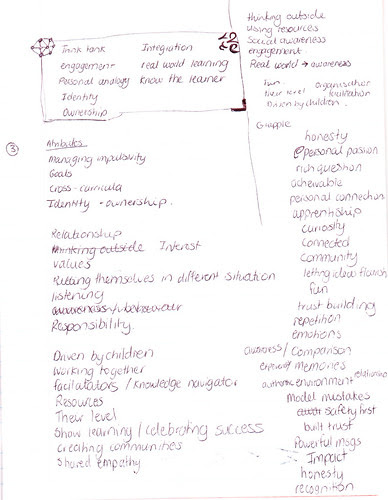 Think tank Integration
engagement real world learning
Personal analogy Know the learner
Identity
Ownership
thinking outside
Using resources
Social awareness
engagement
Real world → awareness
fun organisation
their level facilitation
Driven by children.
③ Attributes
Managing impulsivity
Goals
Cross-curricula
Identity - ownership.
Relationship
thinking outside Interest
values
Putting themselves in different situation
listening
Responsibility
Driven by children
Working together
facilitators / Knowledge navigator
Resources
Their level
Show learning / celebrating success
Creating communities
Shared empathy
honesty
personal passion
rich question
achievable
personal connection
apprentiship
curiosity
Connected
Community
letting ideas flourish
fun
trust building
repetition
emotions
/ Comparison
memories
authentic environment relationship
Model mistakes
safety first
built trust
Powerful msgs
Impact
honesty
recognition